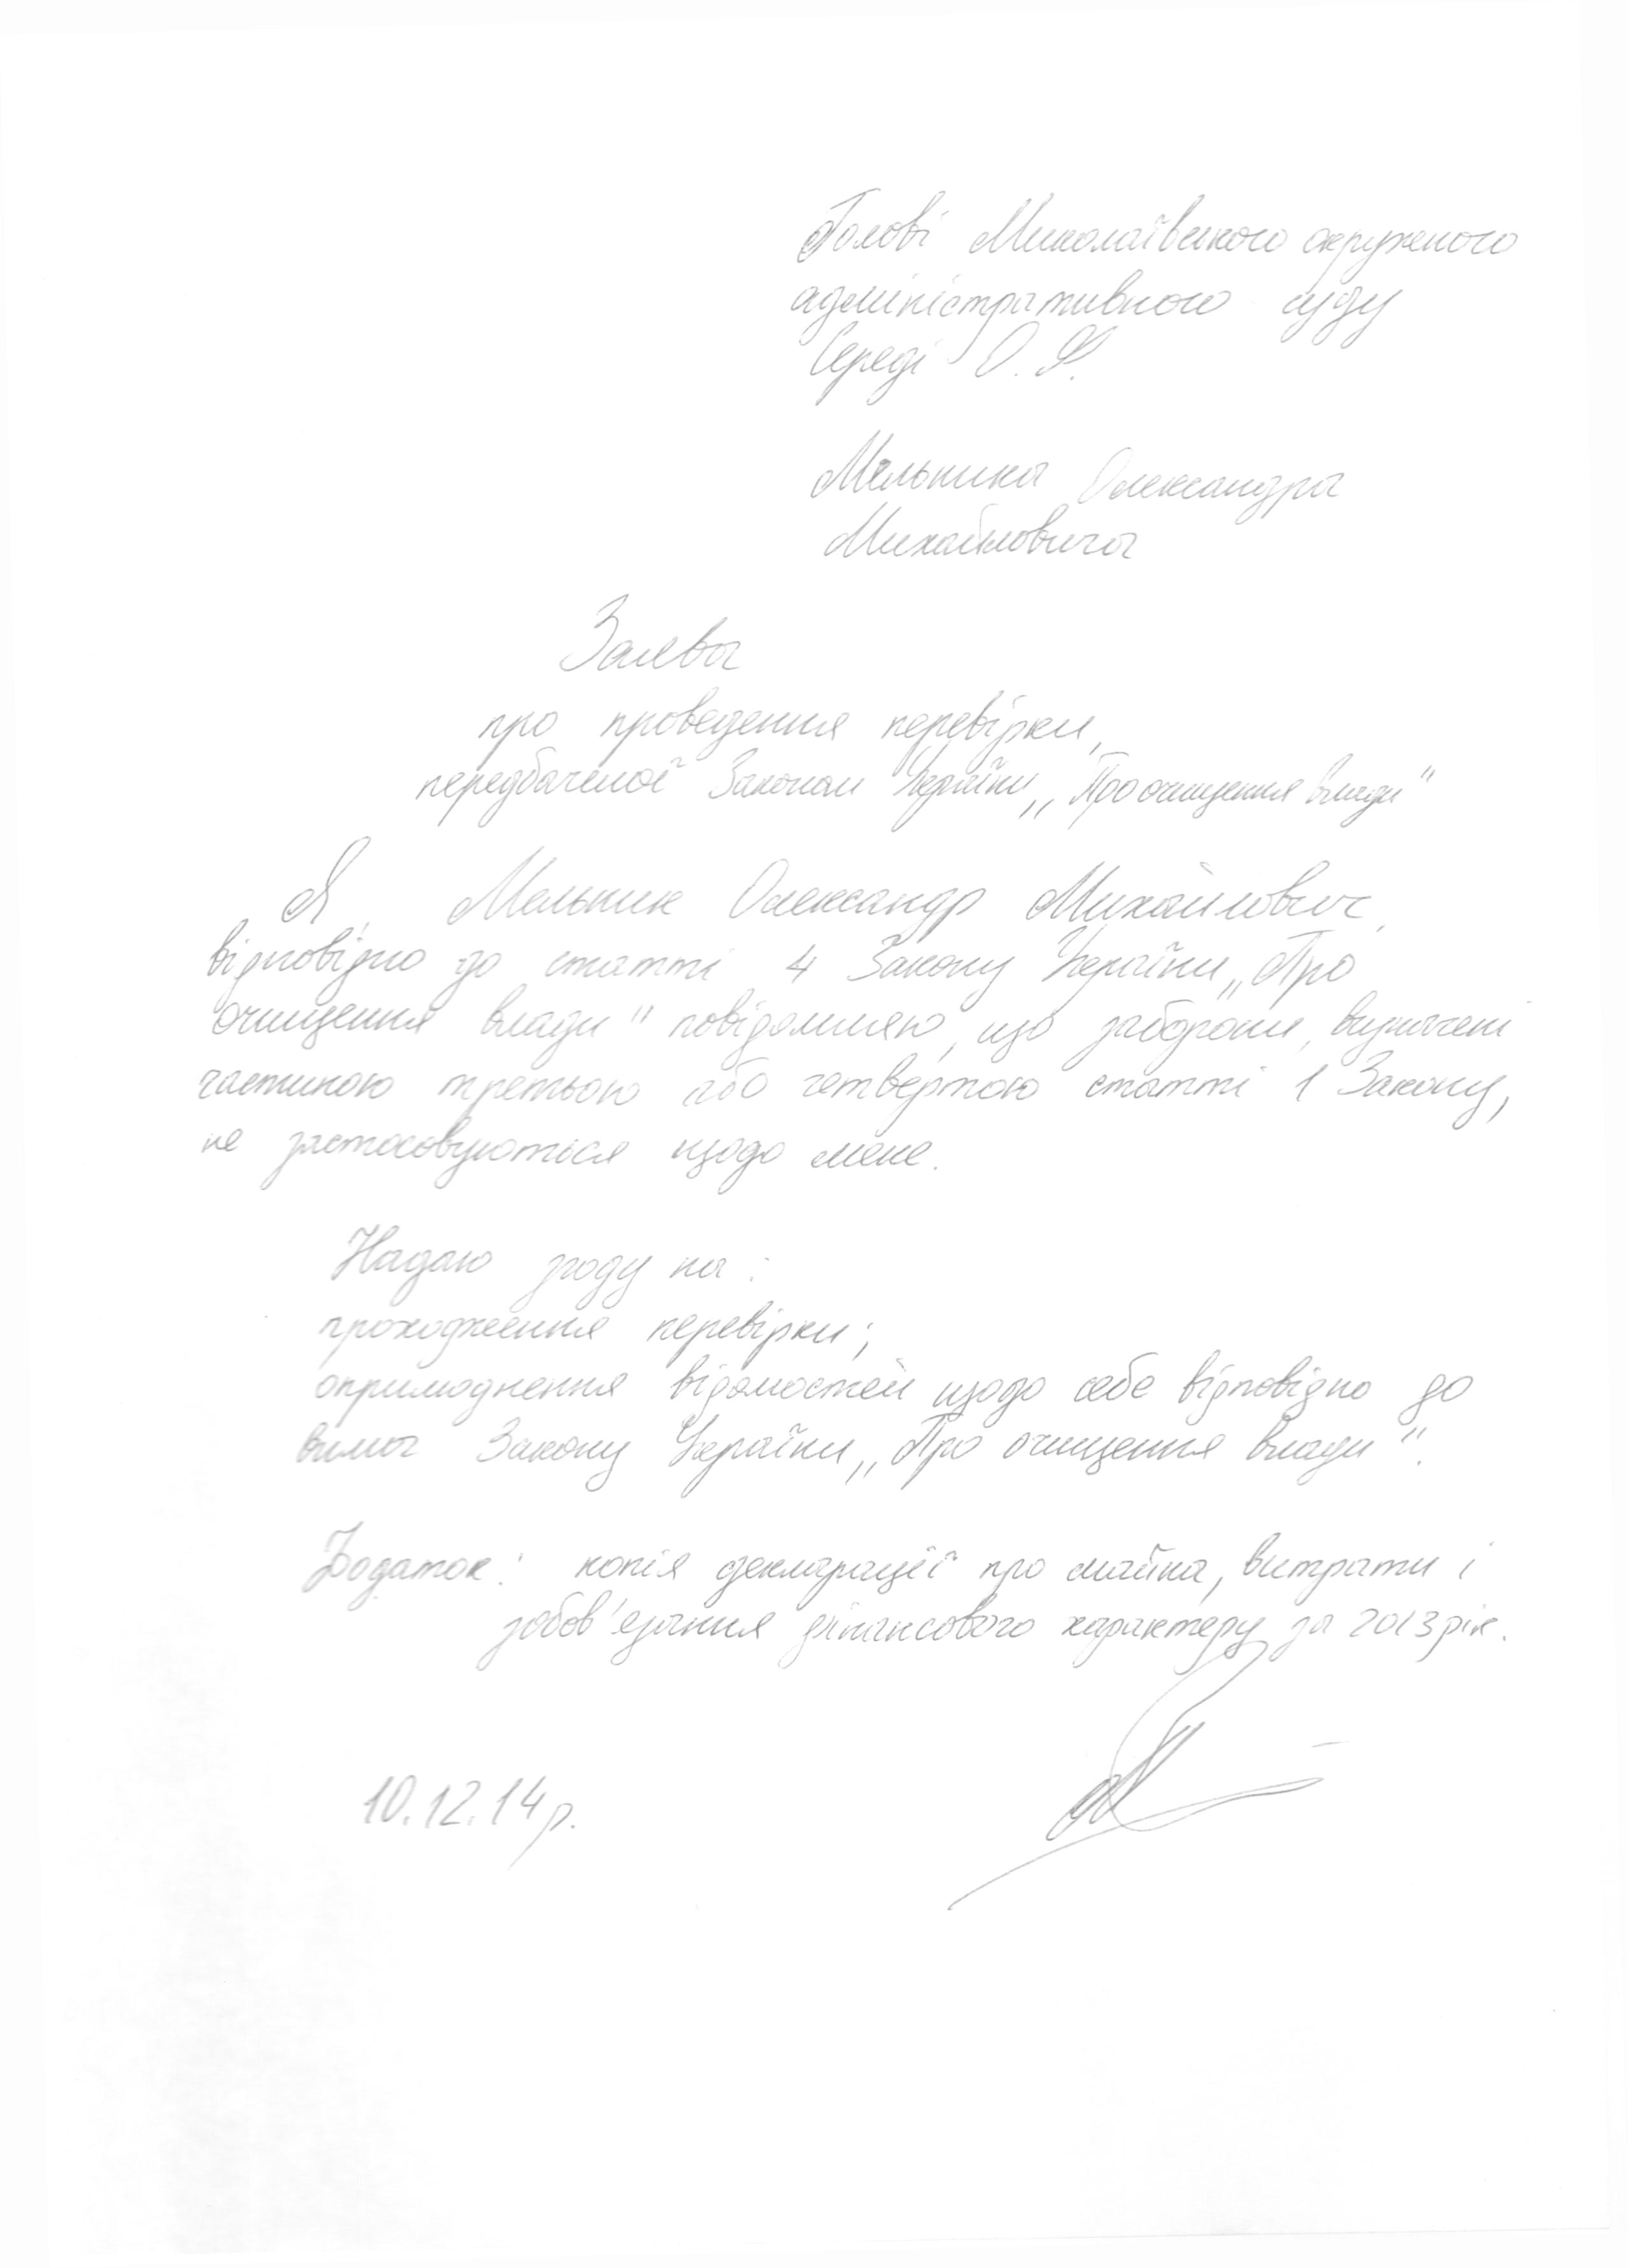 Голові Миколаївського окружного
адміністративного суду
Середі О. Ф.
Мельника Олександра
Михайловича
Заява
про проведення перевірки,
передбаченої Законом України „Про очищення влади"
Я, Мельник Олександр Михайлович,
відповідно до статті 4 Закону України „Про
очищення влади" повідомляю, що заборони, визначені
частиною третьою або четвертою статті 1 Закону,
не застосовуються щодо мене.
Надаю згоду на:
проходження перевірки;
оприлюднення відомостей щодо себе відповідно до
вимог Закону України „Про очищення влади".
Додаток: копія декларації про майна, витрати і
зобов'язання фінансового характеру за 2013 рік.
10.12.14 р.